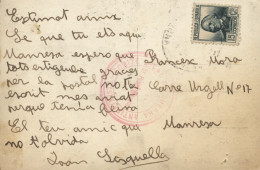 Estimat amic
Se que tu ets aqui
Manresa espero que
tots estigueu gracies
per la postal no ta
escrit mes aviat
perque tenia feina
El teu amic qui
no t'olvida
Joan Sesquella
Francesc Mora
Carre Urgell Nº 17
Manresa